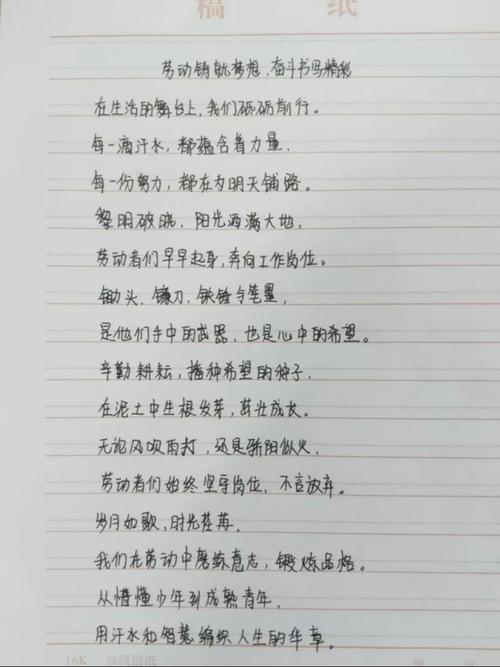 稿 纸
劳动铸就梦想，奋斗书写精彩
在生活的舞台上，我们砥砺前行。
每一滴汗水，都蕴含着力量，
每一份努力，都在为明天铺路。
黎明破晓，阳光洒满大地，
劳动者们早早起身，奔向工作岗位。
锄头、镰刀、铁锤与笔墨，
是他们手中的武器，也是心中的希望。
辛勤耕耘，播种希望的种子，
在泥土中生根发芽，茁壮成长。
无论风吹雨打，还是骄阳似火，
劳动者们始终坚守岗位，不言放弃。
岁月如歌，时光荏苒，
我们在劳动中磨练意志，锻炼品格。
从懵懂少年到成熟青年，
用汗水和智慧编织人生的华章。
16K 双线信纸
第 页